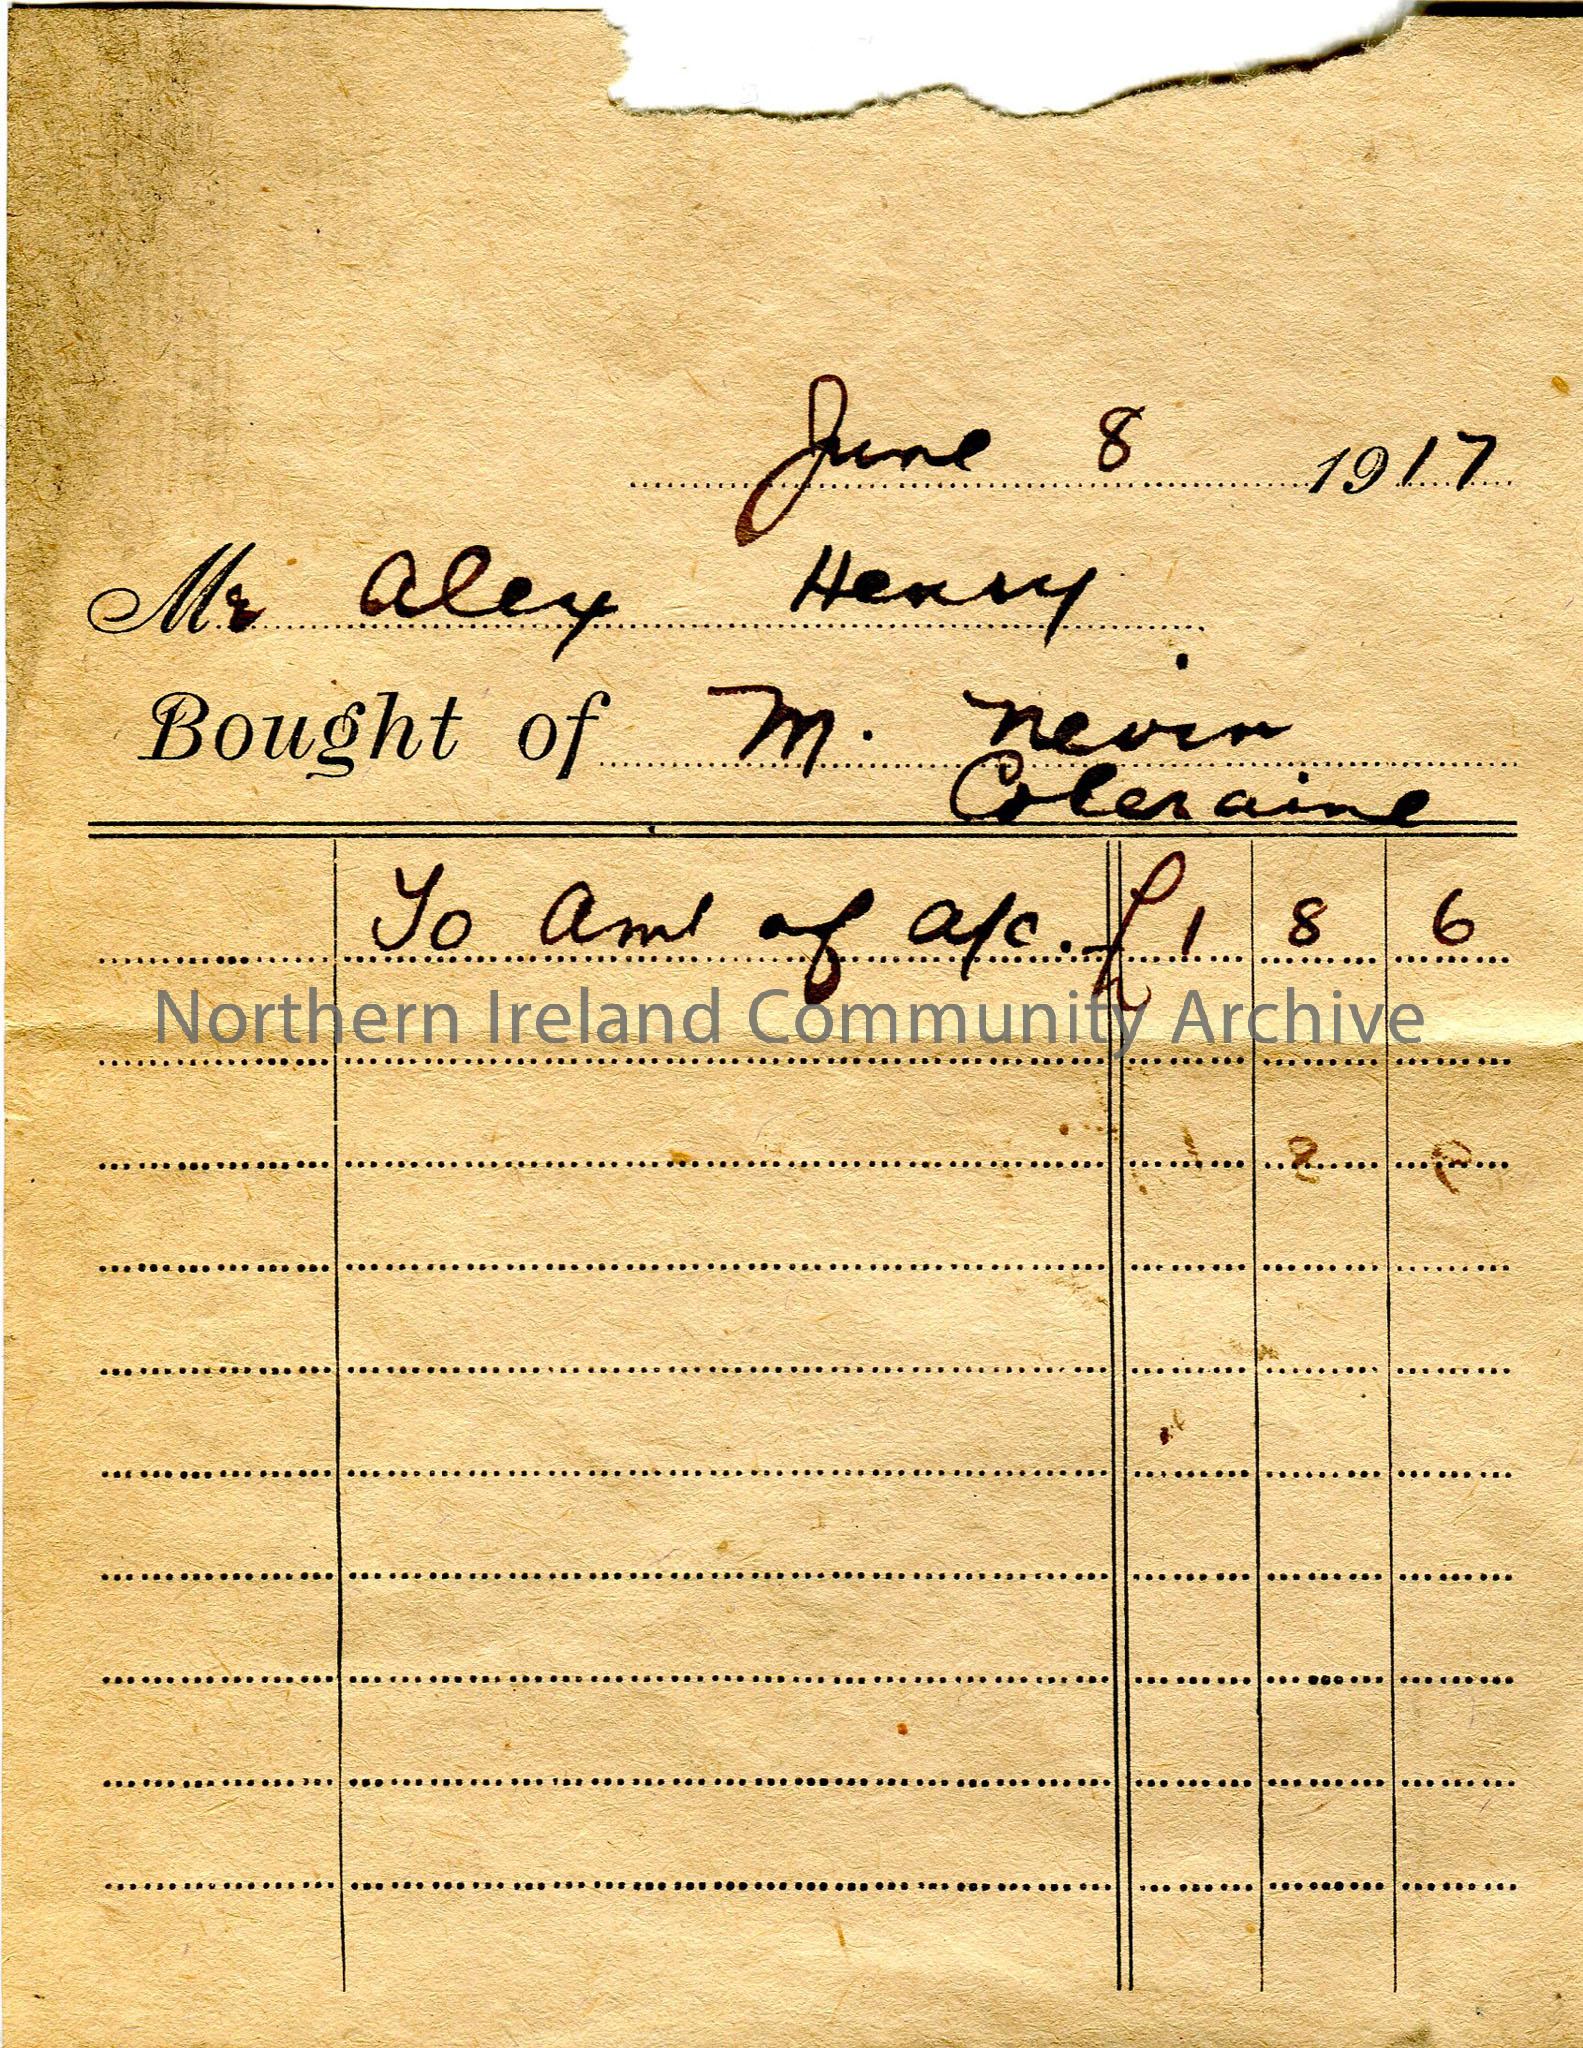 June 8 1917
Mr Alex Henry
Bought of M. Nevin
Coleraine
To Amt of a/c. £ 1 8 6
Northern Ireland Community Archive